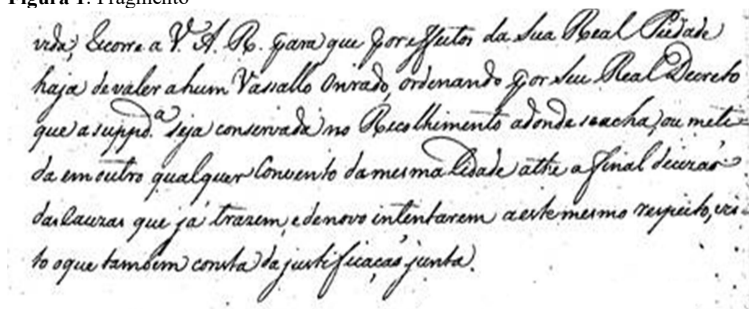 Figura 1. Fragmento
vida; Recorre a V. A. R. para que por effeitos da Sua Real Piedade
haja de valer a hum Vassallo Onrado, ordenando por Seu Real Decreto
que a suppd.ª seja conservada no Recolhimento adonde se acha, ou meti-
da em outro qualquer Convento da mesma Cidade athe a final decizaõ
das Cauzas que já trazem, e de novo intentarem a este mesmo respeito, vis-
to o que tambem consta da justificaçaõ junta.